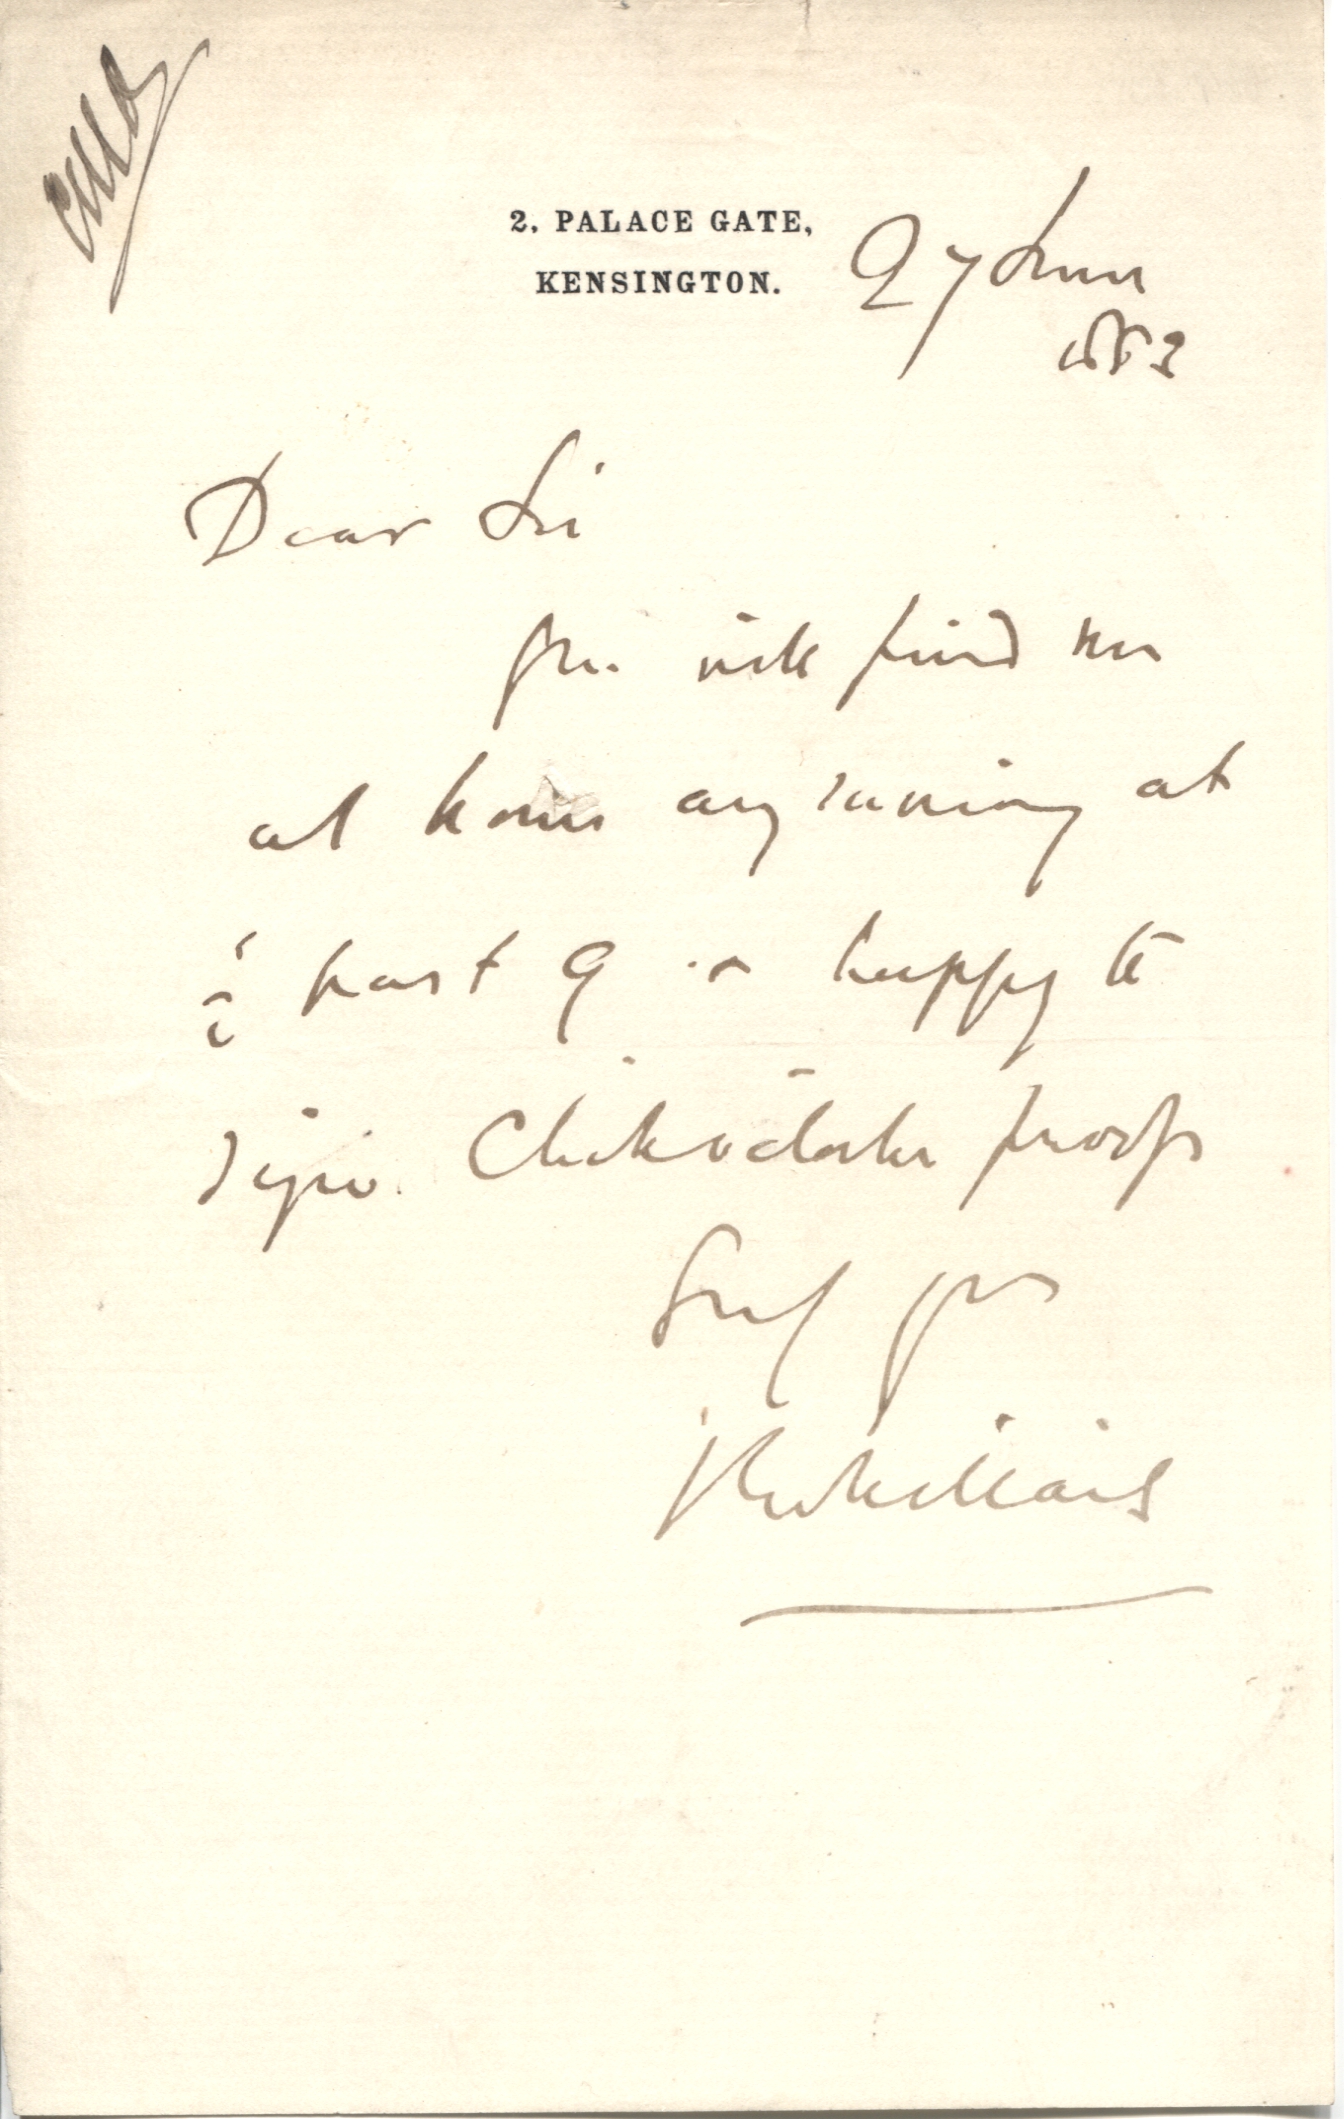 2, PALACE GATE,
KENSINGTON.
27 June
1883
Dear Sir
You will find me
at home any morning at
½ past 9 & happy to
sign proofs
yrs
J E Millais